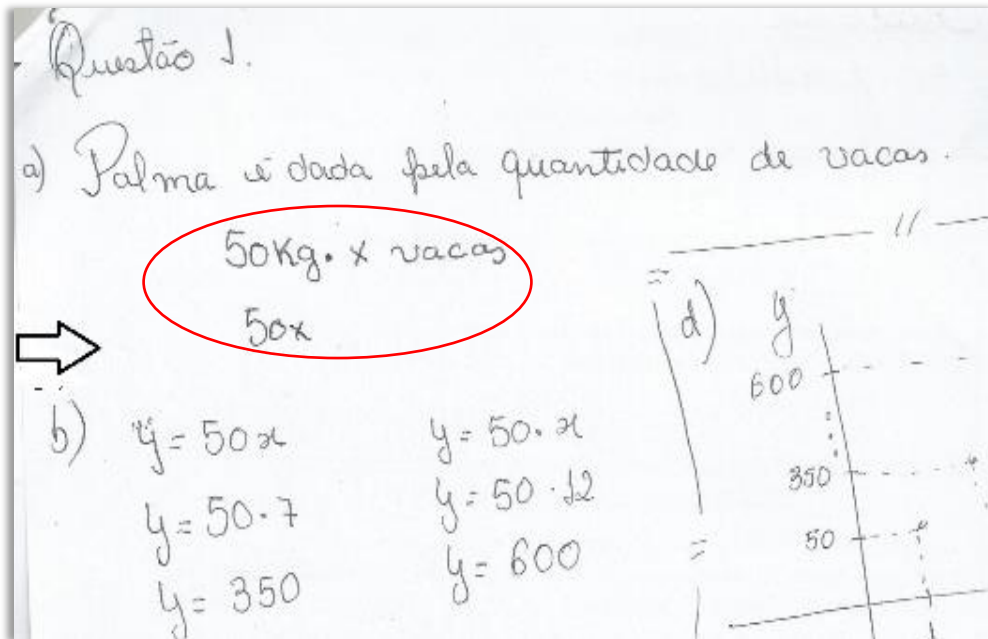 Questão 1.
a) Palma é dada pela quantidade de vacas.
50Kg. x vacas
50x
b) y = 50x
y = 50.7
y = 350
y = 50.x
y = 50.12
y = 600
d) y
600
350
50